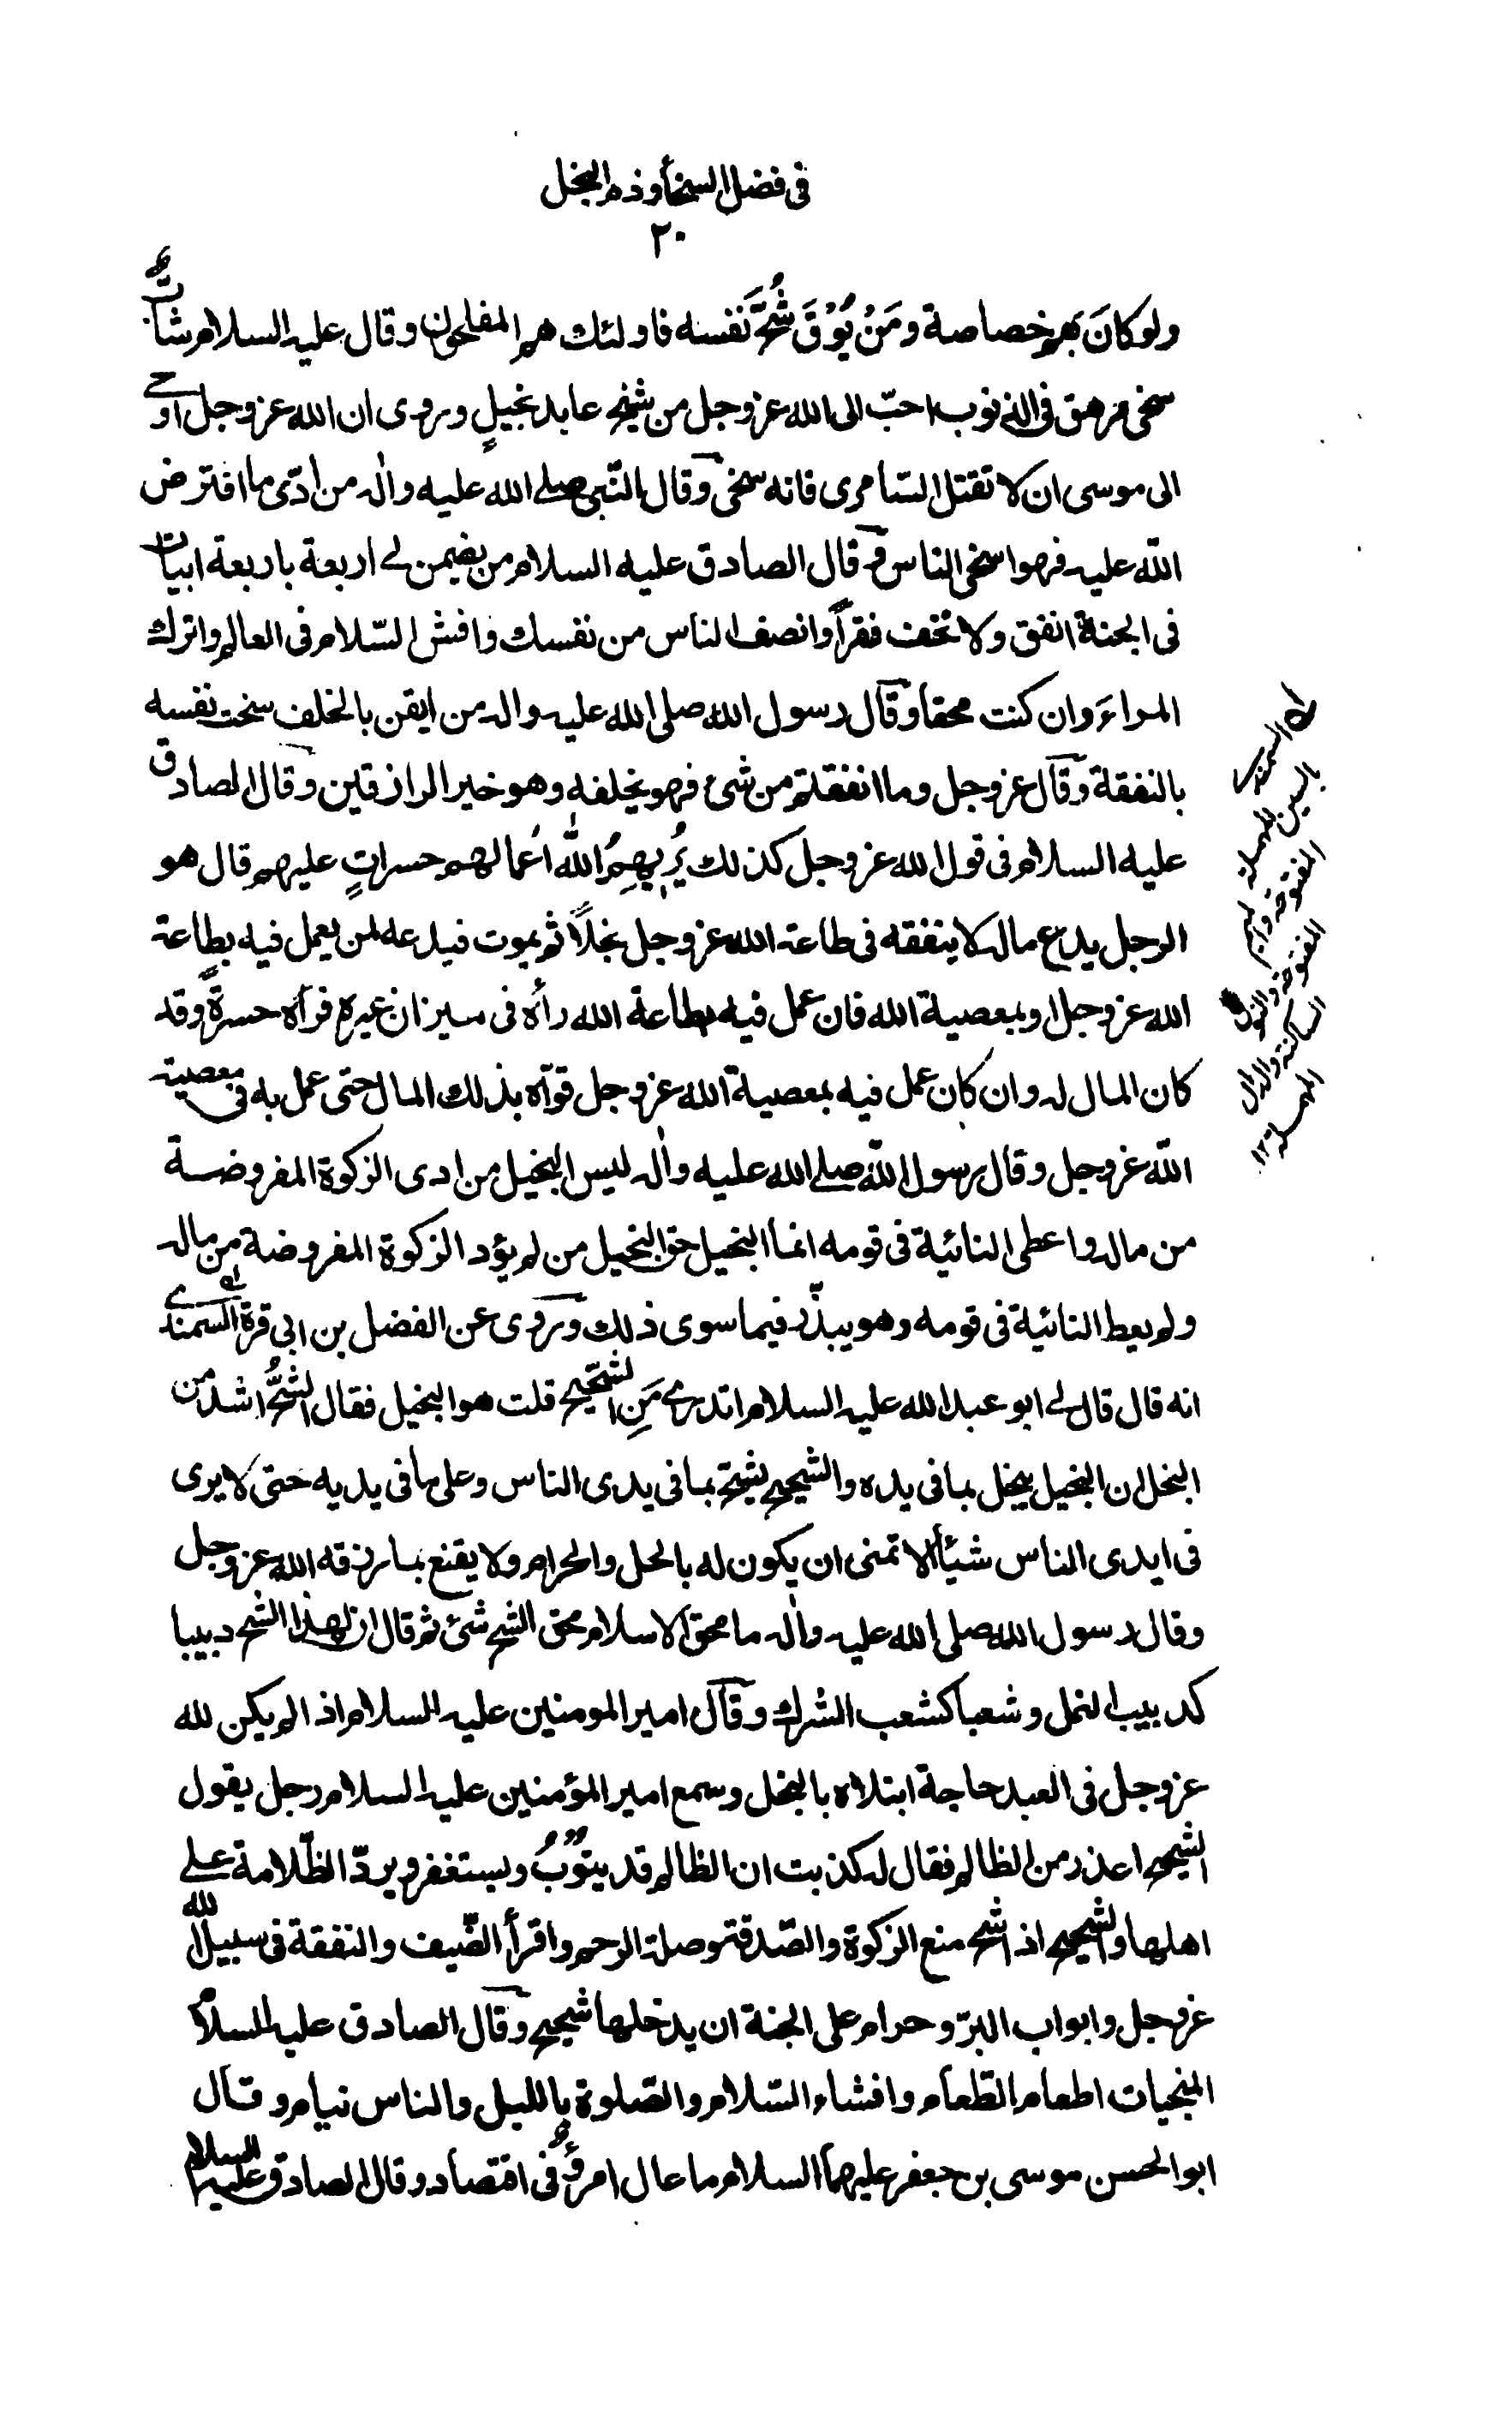 فى فضل السخأ وذم البخل
٢٠
ولو كانَ بهم خصاصة ومَنْ يُوْقَ شُحَّ نَفسه فاولئك هم المفلحون وقال عليه السلام شابٌّ
سخى مرهق فى الذنوب احبّ الى الله عزوجل من شيخ عابد بخيلٍ وروى ان الله عزوجل اوحے
الى موسى ان لا تقتل السّامرى فانه سخى وقال النّبى صلے الله عليه واٰله من ادّى ما افترض
الله عليه فهو اسخى الناس و قال الصادق عليه السلام من يضمن لے اربعة باربعة ابيات
فى الجنة انفق ولا تخف فقراً وانصف الناس من نفسك وافش السّلام فى العالم واترك
المراءَ وان كنت محقا وقال رسول الله صلى الله عليه واله من ايقن بالخلف سخت نفسه
بالنفقة وقال عزوجل وما انفقتم من شئ فهو يخلفه وهو خير الرازقين وقال الصادق
عليه السلام فى قول الله عزوجل كذلك يُرِيهِمُ اللهُ اَعمالهم حسراتٍ عليهم قال هو
الرجل يدع ماله لا ينفقه فى طاعة الله عزوجل بخلاً ثم يموت فيدعه لمن يعمل فيه بطاعة
الله عزوجل او بمعصية الله فان عمل فيه بطاعة الله رأه فى ميزان غيره فرآه حسرةً وقد
كان المال له وان كان عمل فيه بمعصية الله عزوجل قوّاه بذلك المال حتى عمل به فى معصية
الله عزوجل وقال رسول الله صلے الله عليه واٰله ليس البخيل من ادى الزكوة المفروضة
من ماله واعطى النائبة فى قومه انما البخيل حق البخيل من لم يؤد الزكوة المفروضة من ماله
ولم يعط النائبة فى قومه وهو يبذّر فيما سوى ذلك وروى عن الفضل بن ابى قرة السمندے
انه قال قال لے ابو عبد الله عليه السلام اتدرے مَنِ الشحيح قلت هو البخيل فقال الشُّحُّ اشد من
البخل ان البخيل يبخل بما فى يده والشحيح يشح بما فى يدى الناس وعلى ما فى يديه حتى لا يرى
فى ايدى الناس شيئاً الا تمنى ان يكون له بالحل والحرام ولا يقنع بما رزقه الله عزوجل
وقال رسول الله صلى الله عليه واٰله ما محق الاسلام محق الشح شئ ثم قال ان لهذا الشح دبيبا
كدبيب النمل وشعبا كشعب الشرك وقال امير المومنين عليه السلام اذا لم يكن لله
عزوجل فى العبد حاجة ابتلاه بالبخل وسمع امير المؤمنين عليه السلام رجل يقول
الشحيح اعذر من الظالم فقال له كذبت ان الظالم قد يتوبُ ويستغفر ويردّ الظّلامة علے
اهلها والشحيح اذا شح منع الزكوة والصّدقة وصلة الرحم واقرأ الضّيف والنفقة فى سبيل الله
عزوجل وابواب البرّ وحرام على الجنة ان يدخلها شحيح وقال الصادق عليه السلام
المنجيات اطعام الطّعام وافشاء السّلام والصّلوة بالليل والناس نيام وقال
ابو الحسن موسى بن جعفر عليهما السلام ما عال امرؤٌ فى اقتصاد وقال الصادق عليه السلام
السمندى
بالسين المهملة
المفتوحة والميم
المفتوحة والنون
الساكنة والدال
المهملة ١٢